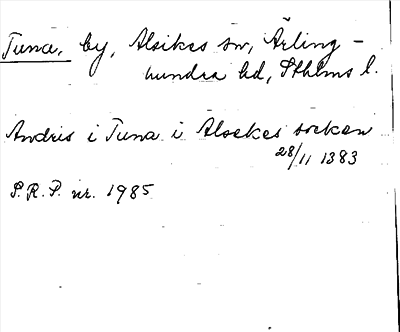 Tuna, by, Alsikes sn, Ärling-
hundra hd, Sthlms l.
Andris i Tuna i Alsekes socken
28/11 1383
S.R.P. nr. 1985